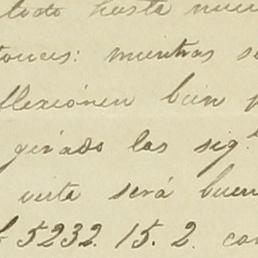 todo hasta nue
tonces: mientras se
flexionen bien p
girado las sig.
vista será buen
5232. 15. 2. con